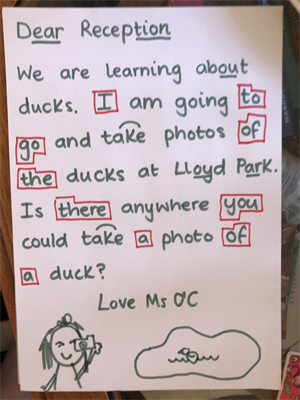 Dear Reception
We are learning about
ducks. I am going to
go and take photos of
the ducks at Lloyd Park.
Is there anywhere you
could take a photo of
a duck?
Love Ms O'C